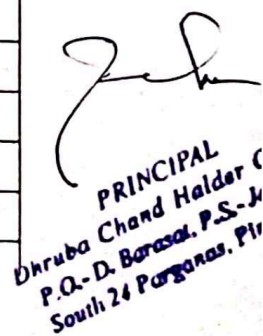 PRINCIPAL
Dhruba Chand Halder C
P.O.- D. Barasat, P.S.- J
South 24 Parganas, Pin